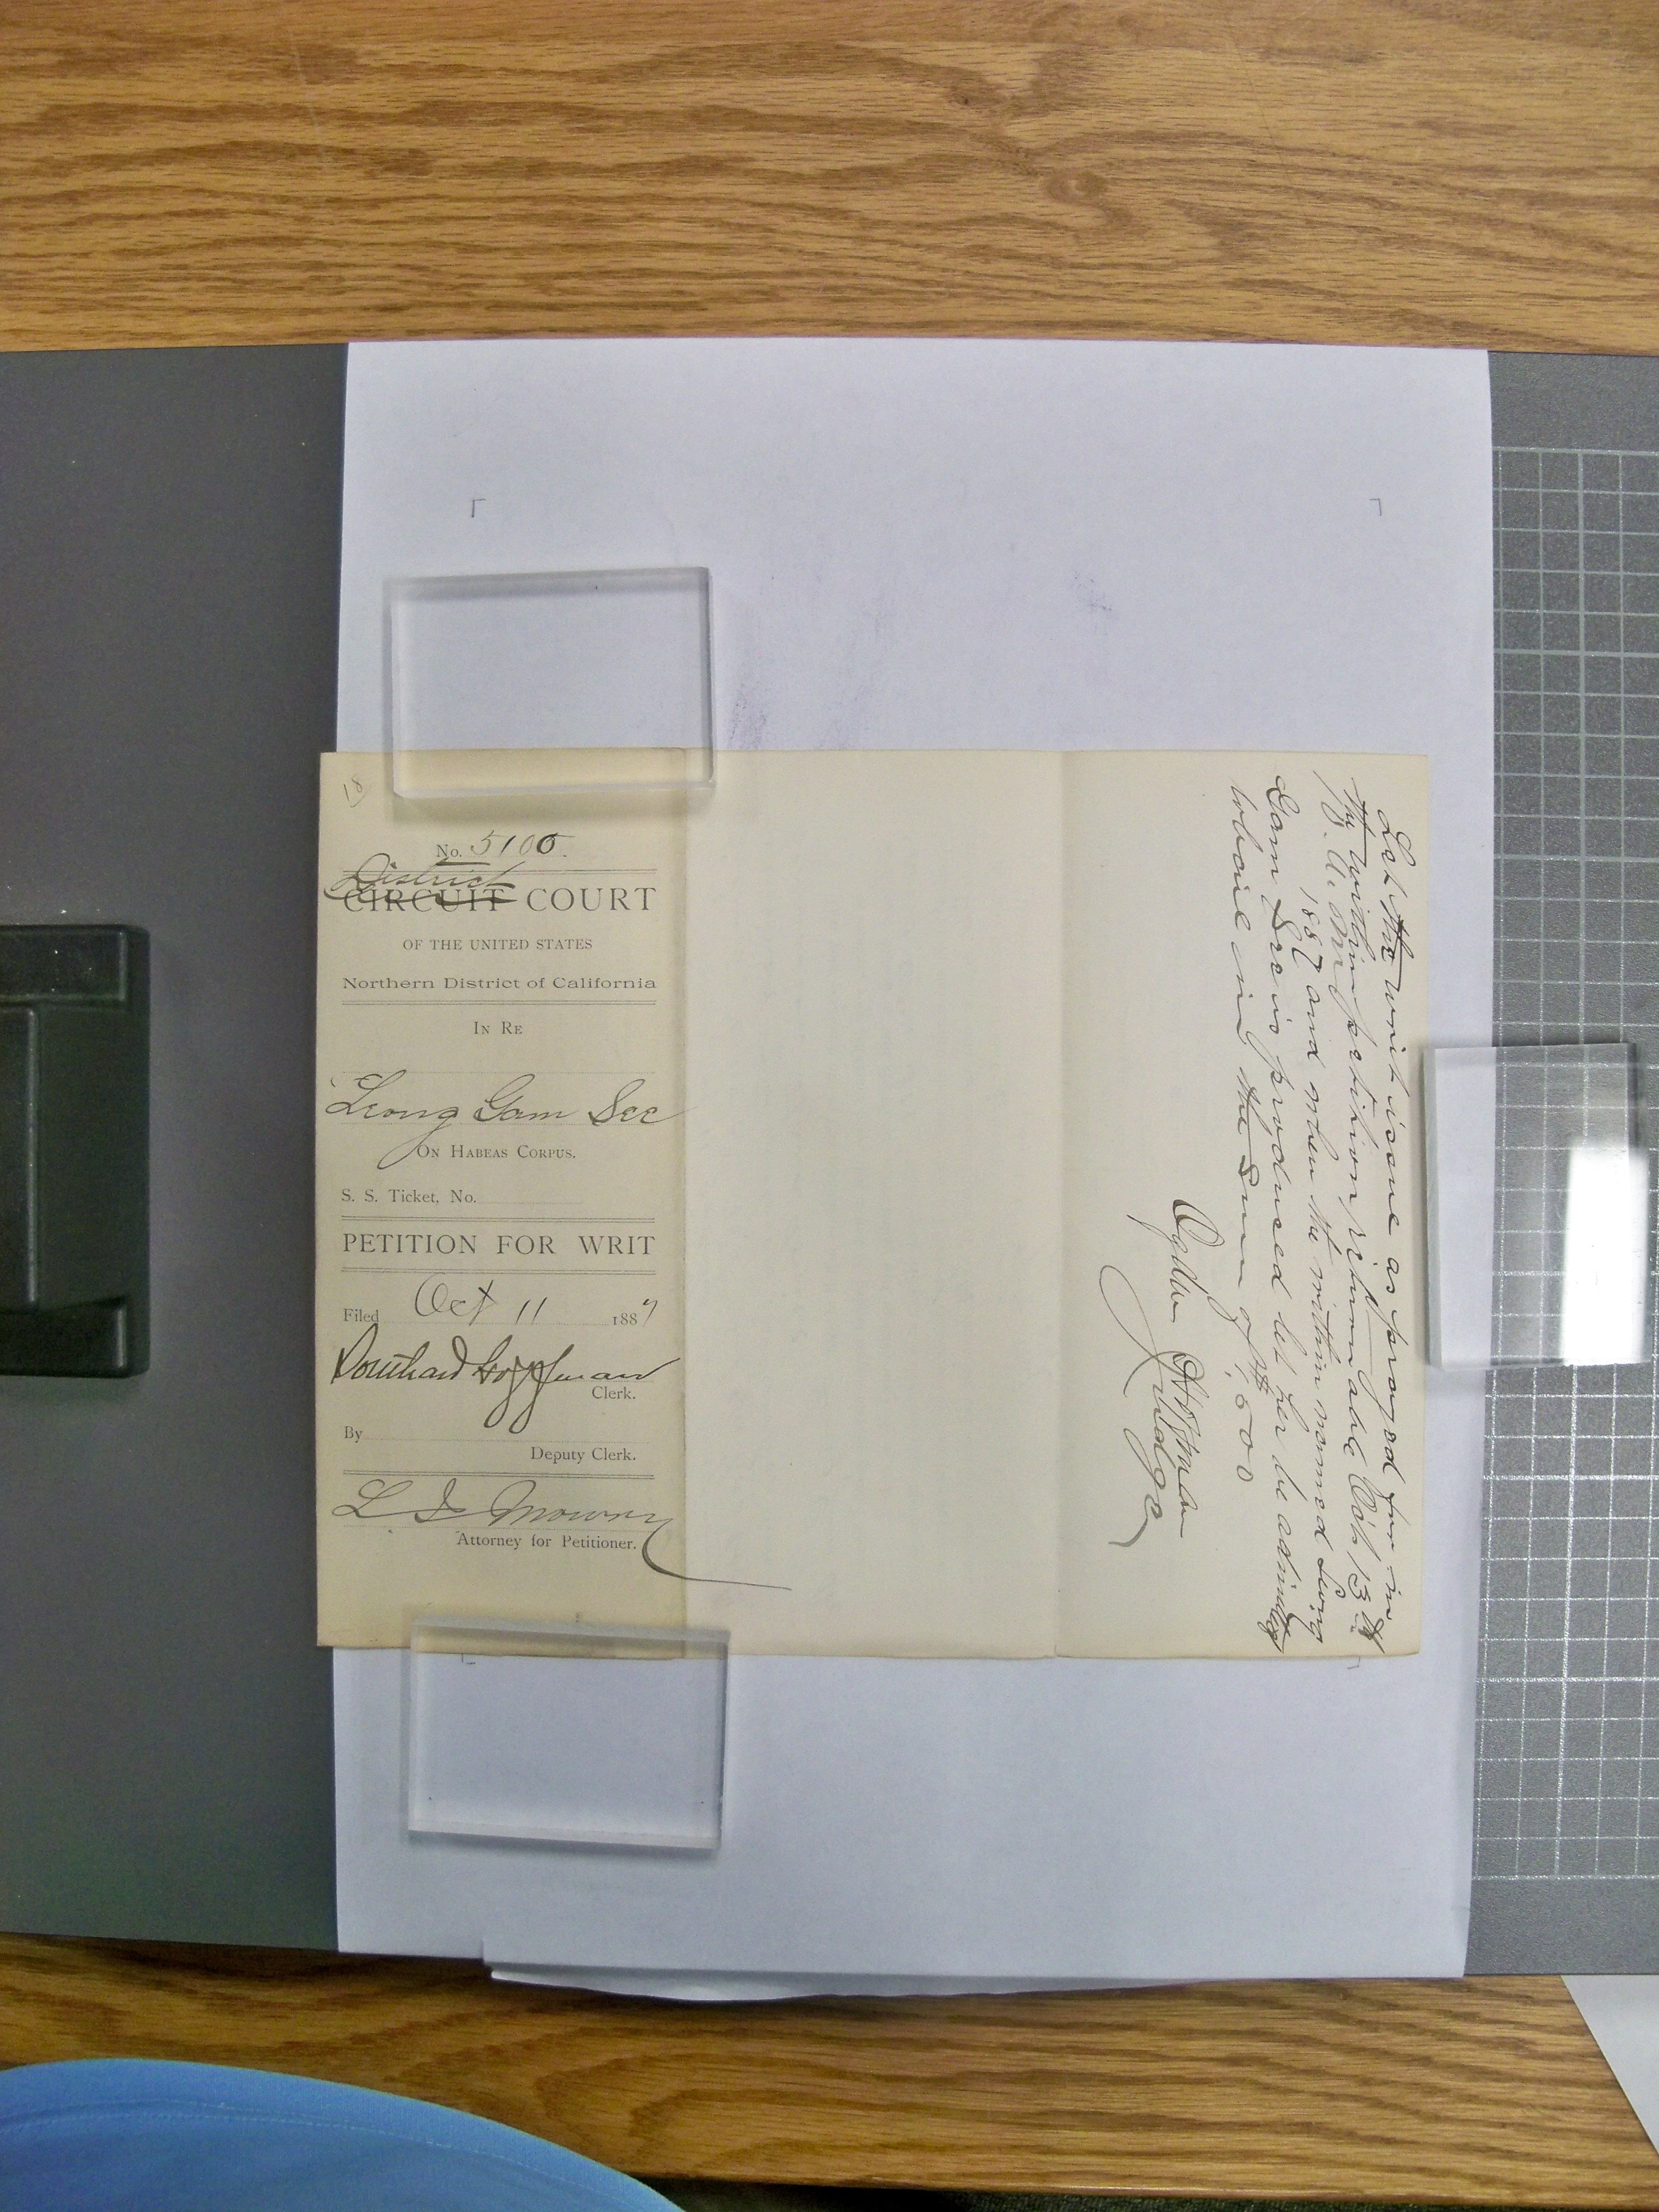 18
No. 5100.
District
CIRCUIT COURT
OF THE UNITED STATES
Northern District of California
IN RE
Leong Gam See
ON HABEAS CORPUS.
S. S. Ticket, No.
PETITION FOR WRIT
Filed Oct 11 1887
Southard Hoffman
Clerk.
By
Deputy Clerk.
L I Mowry
Attorney for Petitioner.
Let the writ issue as prayed for in
the within petition returnable Oct 13th
1887 and when the within named Leong
Gam See is produced let her be admitted
to bail in the sum of $1,500
Ogden Hoffman
Judge